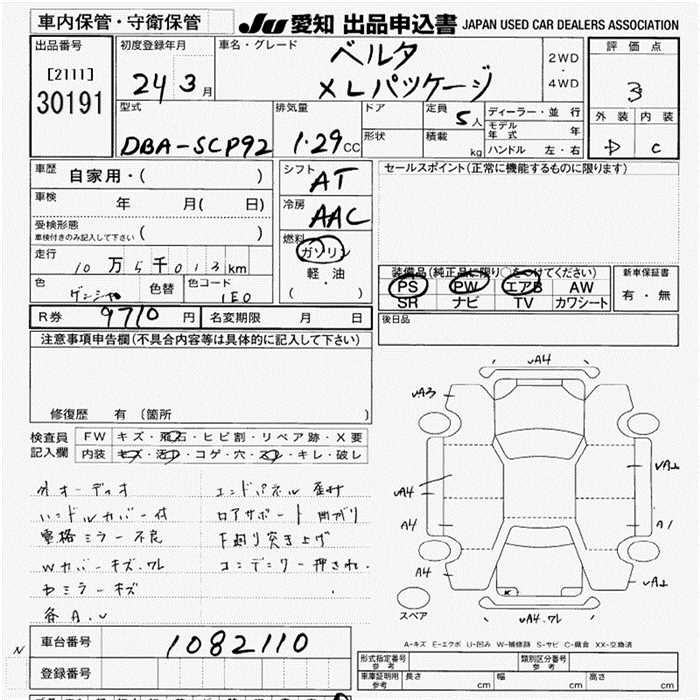 車内保管・守衛保管
JU 愛知 出品申込書 JAPAN USED CAR DEALERS ASSOCIATION
出品番号
[2111]
30191
初度登録年月
24 3月
車名・グレード
ベルタ
XLパッケージ
2WD
・
4WD
評価点
3
外装 内装
D C
型式
DBA-SCP92
排気量
1.29CC
ドア
形状
定員 5人
積載 kg
ディーラー・並行
モデル年式 年
ハンドル 左・右
車歴
自家用・( )
車検
年 月( 日)
受検形態
車検付きのみ記入して下さい ( )
走行
10万5千013km
色
色替
色コード
1E0
シフト
AT
冷房
AAC
燃料
ガソリン
軽・油
( ・ )
セールスポイント(正常に機能するものに限ります)
装備品(純正品に限り○をつけてください)
PS PW エアB AW
SR ナビ TV カワシート
新車保証書
有・無
R券 9710円
名変期限 月 日
後日品
注意事項申告欄(不具合内容等は具体的に記入して下さい)
修復歴 有 (箇所 )
検査員
記入欄
FW キズ・飛石・ヒビ割・リペア跡・X要
内装 キズ・汚レ・コゲ・穴・スレ・キレ・破レ
オーディオ
ハンドルカバー付
電格ミラー不良
Wカバーキズ、ワレ
ミラーキズ
各A.U
エンドパネル
ロアサポート曲がり
下廻り突き上げ
押され
vA4
vA3
vA4
A4
A4
A1
vA4.ワレ
スペア
A-キズ E-エクボ U-凹み W-補修跡 S-サビ C-腐食 XX-交換済
N
車台番号 1082110
登録番号
形式指定番号 参考
類別区分番号 参考
車庫証明用 参考 長さ cm 幅 cm 高さ cm